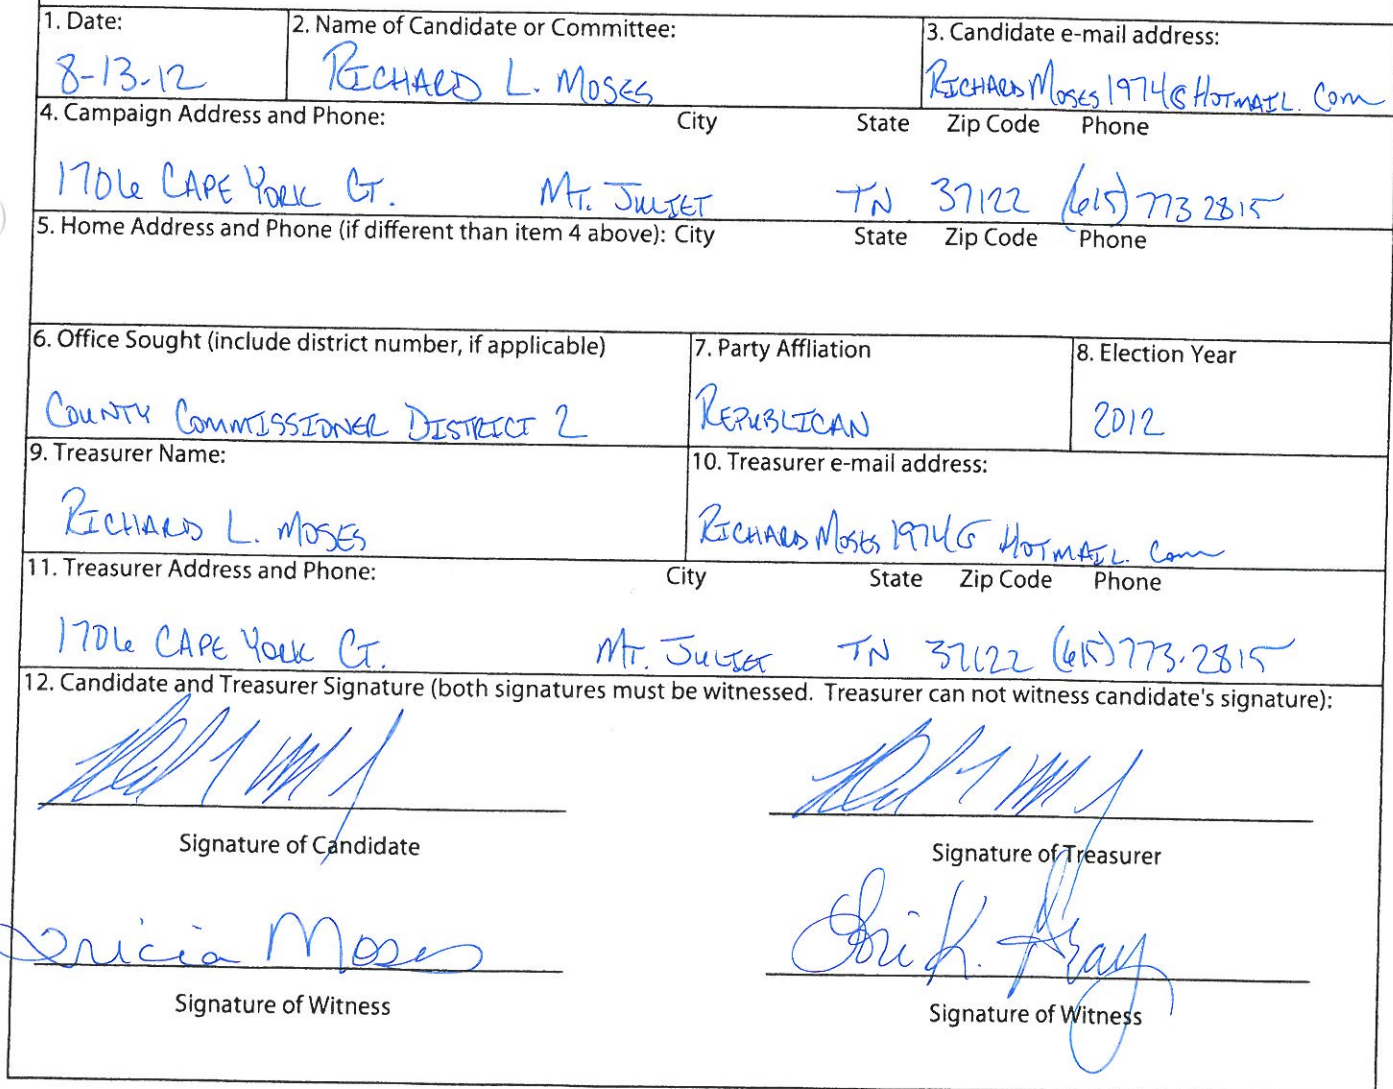 1. Date:
2. Name of Candidate or Committee:
3. Candidate e-mail address:
8-13-12
RICHARD L. MOSES
RICHARDMOSES1974@HOTMAIL.COM
4. Campaign Address and Phone: City State Zip Code Phone
1706 CAPE YORK CT. MT. JULIET TN 37122 (615) 773 2815
5. Home Address and Phone (if different than item 4 above): City State Zip Code Phone
6. Office Sought (include district number, if applicable)
7. Party Affliation
8. Election Year
COUNTY COMMISSIONER DISTRICT 2
REPUBLICAN
2012
9. Treasurer Name:
10. Treasurer e-mail address:
RICHARD L. MOSES
RICHARDMOSES1974@HOTMAIL.COM
11. Treasurer Address and Phone: City State Zip Code Phone
1706 CAPE YORK CT. MT. JULIET TN 37122 (615)773.2815
12. Candidate and Treasurer Signature (both signatures must be witnessed. Treasurer can not witness candidate's signature):
Signature of Candidate
Signature of Treasurer
Moses
K. Gray
Signature of Witness
Signature of Witness